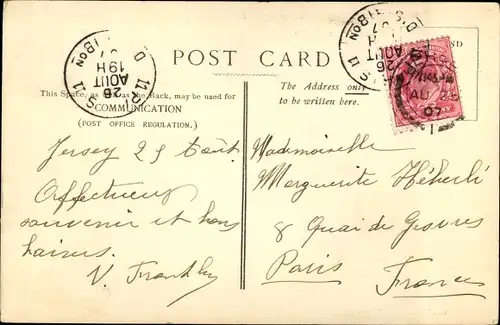 POST CARD
This Space, as well as the Back, may be used for
COMMUNICATION
(POST OFFICE REGULATION.)
The Address only
to be written here.
26
AOUT
19H
26
AOUT
07
Jersey 25 Août
Affectueux
souvenir et bons
baisers.
V.
Mademoiselle
Marguerite Héberlé
8 Quai de Gesvres
Paris
France